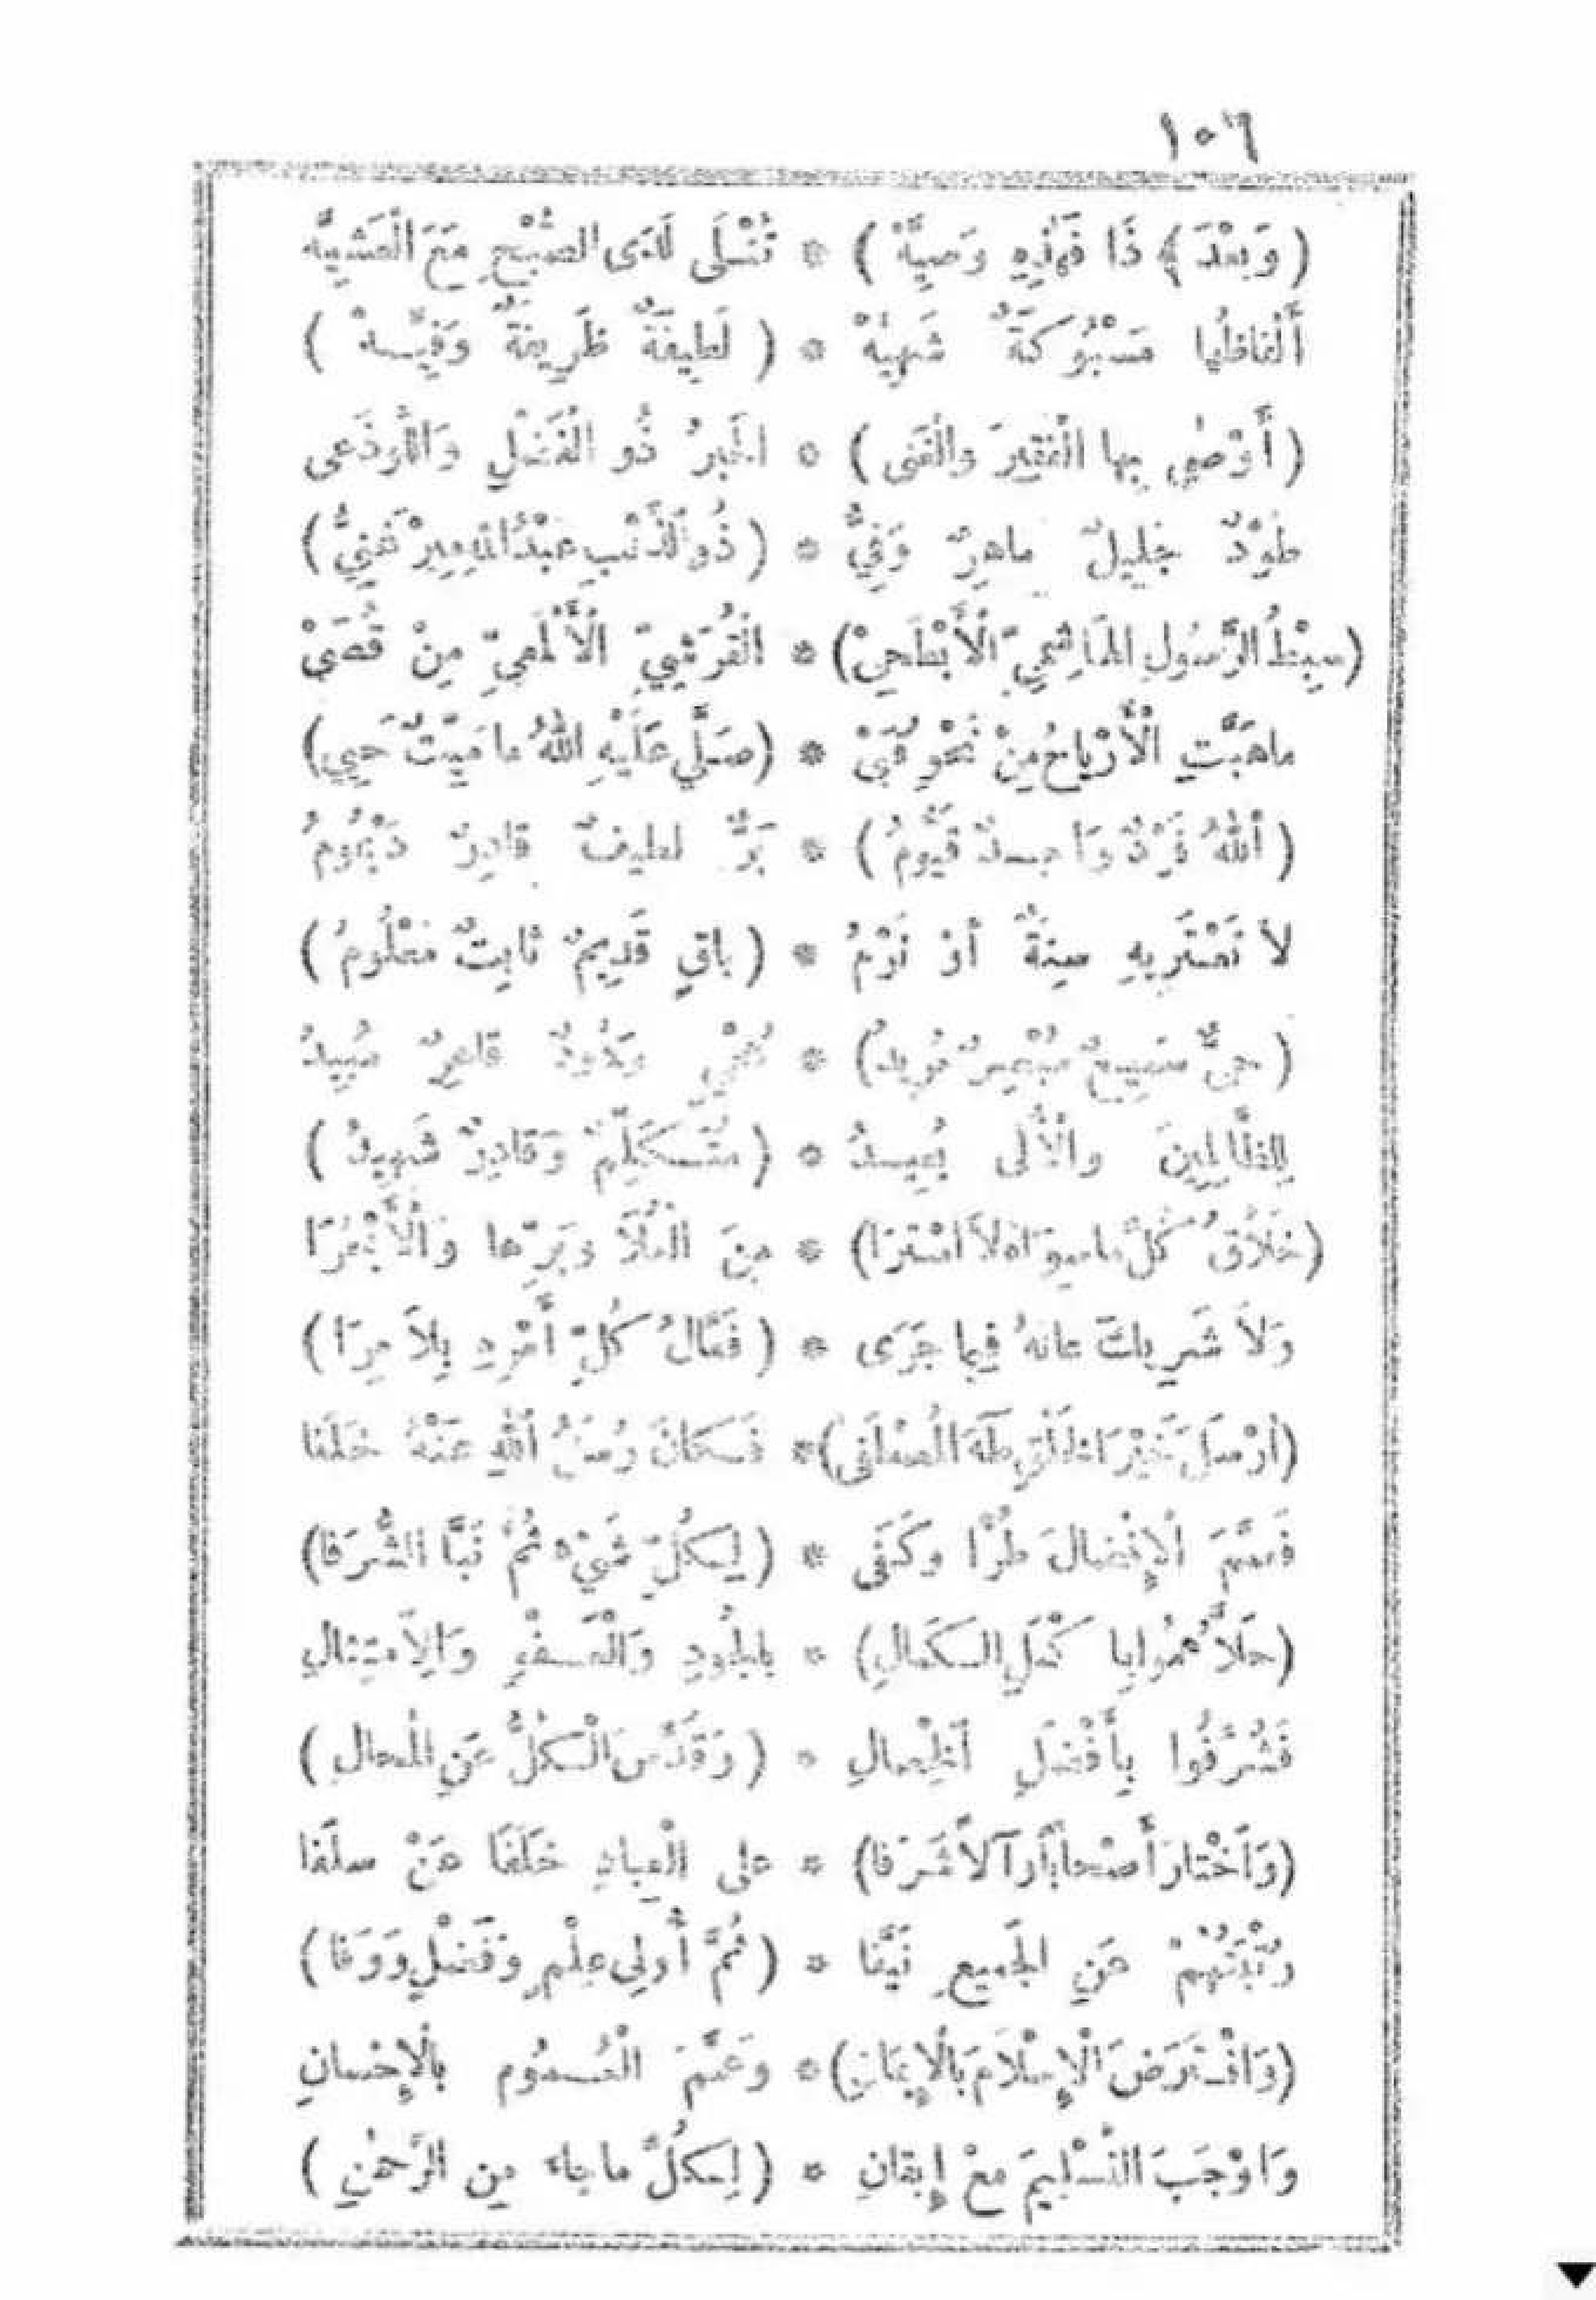 ١٠٦
(وَبَعْدَ) ذَا فَهٰذِهِ وَصِيَّهْ) * تُتْلَى لَدَى الصُّبْحِ مَعَ الْعَشِيَّه
أَلْفَاظُها مَسْبُوكَةٌ شَهِيَّهْ * (لَطِيفَةٌ ظَرِيفَةٌ وَفِيَّهْ)
(أَوْصٰى بِها الْفَقِيرَ والْغَنِى) * الخَبْرُ ذُو الْفَضْلِ
طَوْدٌ جَلِيلٌ ماهِرٌ وَفِيُّ * (ذُو الذَّنْبِ عَبْدُ اللهِ مِيرْغَنِيُّ)
(سِبْطُ الرَّسُولِ الهَاشِمِيِّ الْأَبْطَحِيْ) * الْقُرَشِيِّ الْأَلْمَعِيِّ مِنْ قُصَىْ
ماهَبَّتِ الْأَرْيَاحُ مِنْ نَحْوِ قُبَىْ * (صَلَّى عَلَيْهِ اللهُ ما مَيِّتٌ حَيِي)
(أَللهُ فَرْدٌ وَاحِدٌ قَيُّومُ) * بَرٌّ لطيفٌ قادِرٌ دَيْمُومُ
لاَ تَعْتَرِيهِ سِنَةٌ أَوْ نَوْمُ * (باقِي قَدِيمٌ ثابِتٌ مَعْلُومُ)
(حَىٌّ سَمِيعٌ مُبْصِرٌ مُرِيدُ) * قاهِرٌ مُبِيدُ
لِلظَّالِمِينَ والْأُلَى يُعِيدُ * (مُتَكَلِّمٌ وَقَادِرٌ شَهِيدُ)
(خَلاَّقُ كُلِّ ماسِوَاهُ لاَ امْتِرَا) * مِنَ الْعُلاَ وَبَرِّها وَالْأَبْحُرَا
وَلاَ شَرِيكَ عانَهُ فِيما جَرَى * (فَعَّالُ كُلِّ أَمْرِهِ بِلاَ مِرَا)
(أَرْسَلَ خَيْرَ الخَلْقِ طٰهَ الْمُصْطَفَى) * فَكَانَ رُسْلُ اللهِ عَنْهُ خُلَفَا
فَعَمَّمَ الْإِفْضالَ طُرًّا وَكَفَى * (لِكُلِّ شَيْءٍ ثُمَّ نَبَّا الشُّرَفَا)
(حَلاَّهُمُوا يا كُمَّلِ الكَمالِ) * بالجُودِ وَالْعَفْوِ وَالِامْتِثالِ
فَشُرِّفُوا بِأَفْضَلِ الخِصالِ * (وَقَدَّسَ الْكُلَّ عَنِ المُحالِ)
(وَاخْتارَ أَصْحاباً وَآلاً شُرَفَا) * على الْعِبادِ خَلَفًا عَنْ سلَفَا
رُتْبَتُهُمْ عَنِ الجَمِيعِ نَيَّفَا * (ثُمَّ أُولِي عِلْمٍ وَفَضْلٍ وَوَفَا)
(وَافْتَرَضَ الْإِسْلاَمَ بالْإِيمَانِ) * وَعَمَّمَ الْعُمُومَ بالْإِحْسانِ
وَاوْجَبَ التَّسْلِيمَ مَعْ إِيقانِ * (لِكُلِّ ما جاء مِن الرَّحْمٰنِ)